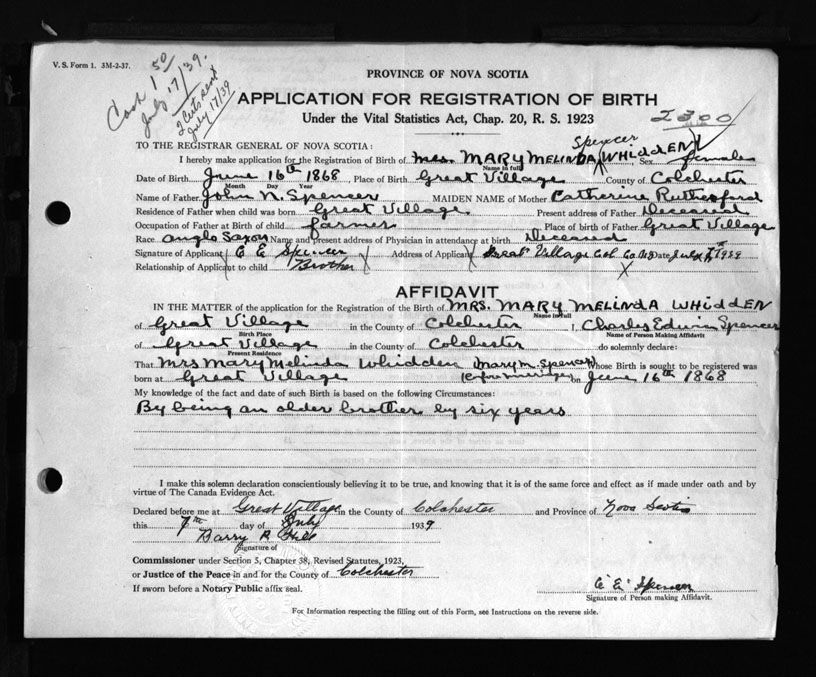 V. S. Form 1. 3M-2-37.
Cash 1 50
July 17/39.
2 Certs sent
July 17/39
PROVINCE OF NOVA SCOTIA
APPLICATION FOR REGISTRATION OF BIRTH
2300
Under the Vital Statistics Act, Chap. 20, R. S. 1923
TO THE REGISTRAR GENERAL OF NOVA SCOTIA:
Spencer
I hereby make application for the Registration of Birth of Mrs. MARY MELINDA WHIDDEN Sex female
Name in full
Date of Birth June 16th 1868 Place of Birth Great Village County of Colchester
Month Day Year
Name of Father John N. Spencer MAIDEN NAME of Mother Catherine Rutherford
Residence of Father when child was born Great Village Present address of Father Deceased
Occupation of Father at Birth of child farmer Place of birth of Father Great Village
Race Anglo Saxon Name and present address of Physician in attendance at birth Deceased
Signature of Applicant C E Spencer Address of Applicant Great Village Col. Co. N S Date July 7th 1939
Relationship of Applicant to child Brother
AFFIDAVIT
IN THE MATTER of the application for the Registration of the Birth of MRS. MARY MELINDA WHIDDEN
Name in full
of Great Village in the County of Colchester I, Charles Edwin Spencer
Birth Place Name of Person Making Affidavit
of Great Village in the County of Colchester do solemnly declare:
Present Residence
That Mrs Mary Melinda Whidden (Mary M. Spencer Whose Birth is sought to be registered was
born at Great Village before marriage) on June 16th 1868
My knowledge of the fact and date of such Birth is based on the following Circumstances:
By being an older brother by six years
I make this solemn declaration conscientiously believing it to be true, and knowing that it is of the same force and effect as if made under oath and by
virtue of The Canada Evidence Act.
Declared before me at Great Village in the County of Colchester and Province of Nova Scotia
this 7th day of July 1939
Barry R Hill
Signature of
Commissioner under Section 5, Chapter 38, Revised Statutes, 1923,
or Justice of the Peace in and for the County of Colchester
If sworn before a Notary Public affix seal.
C E Spencer
Signature of Person making Affidavit.
For Information respecting the filling out of this Form, see Instructions on the reverse side.